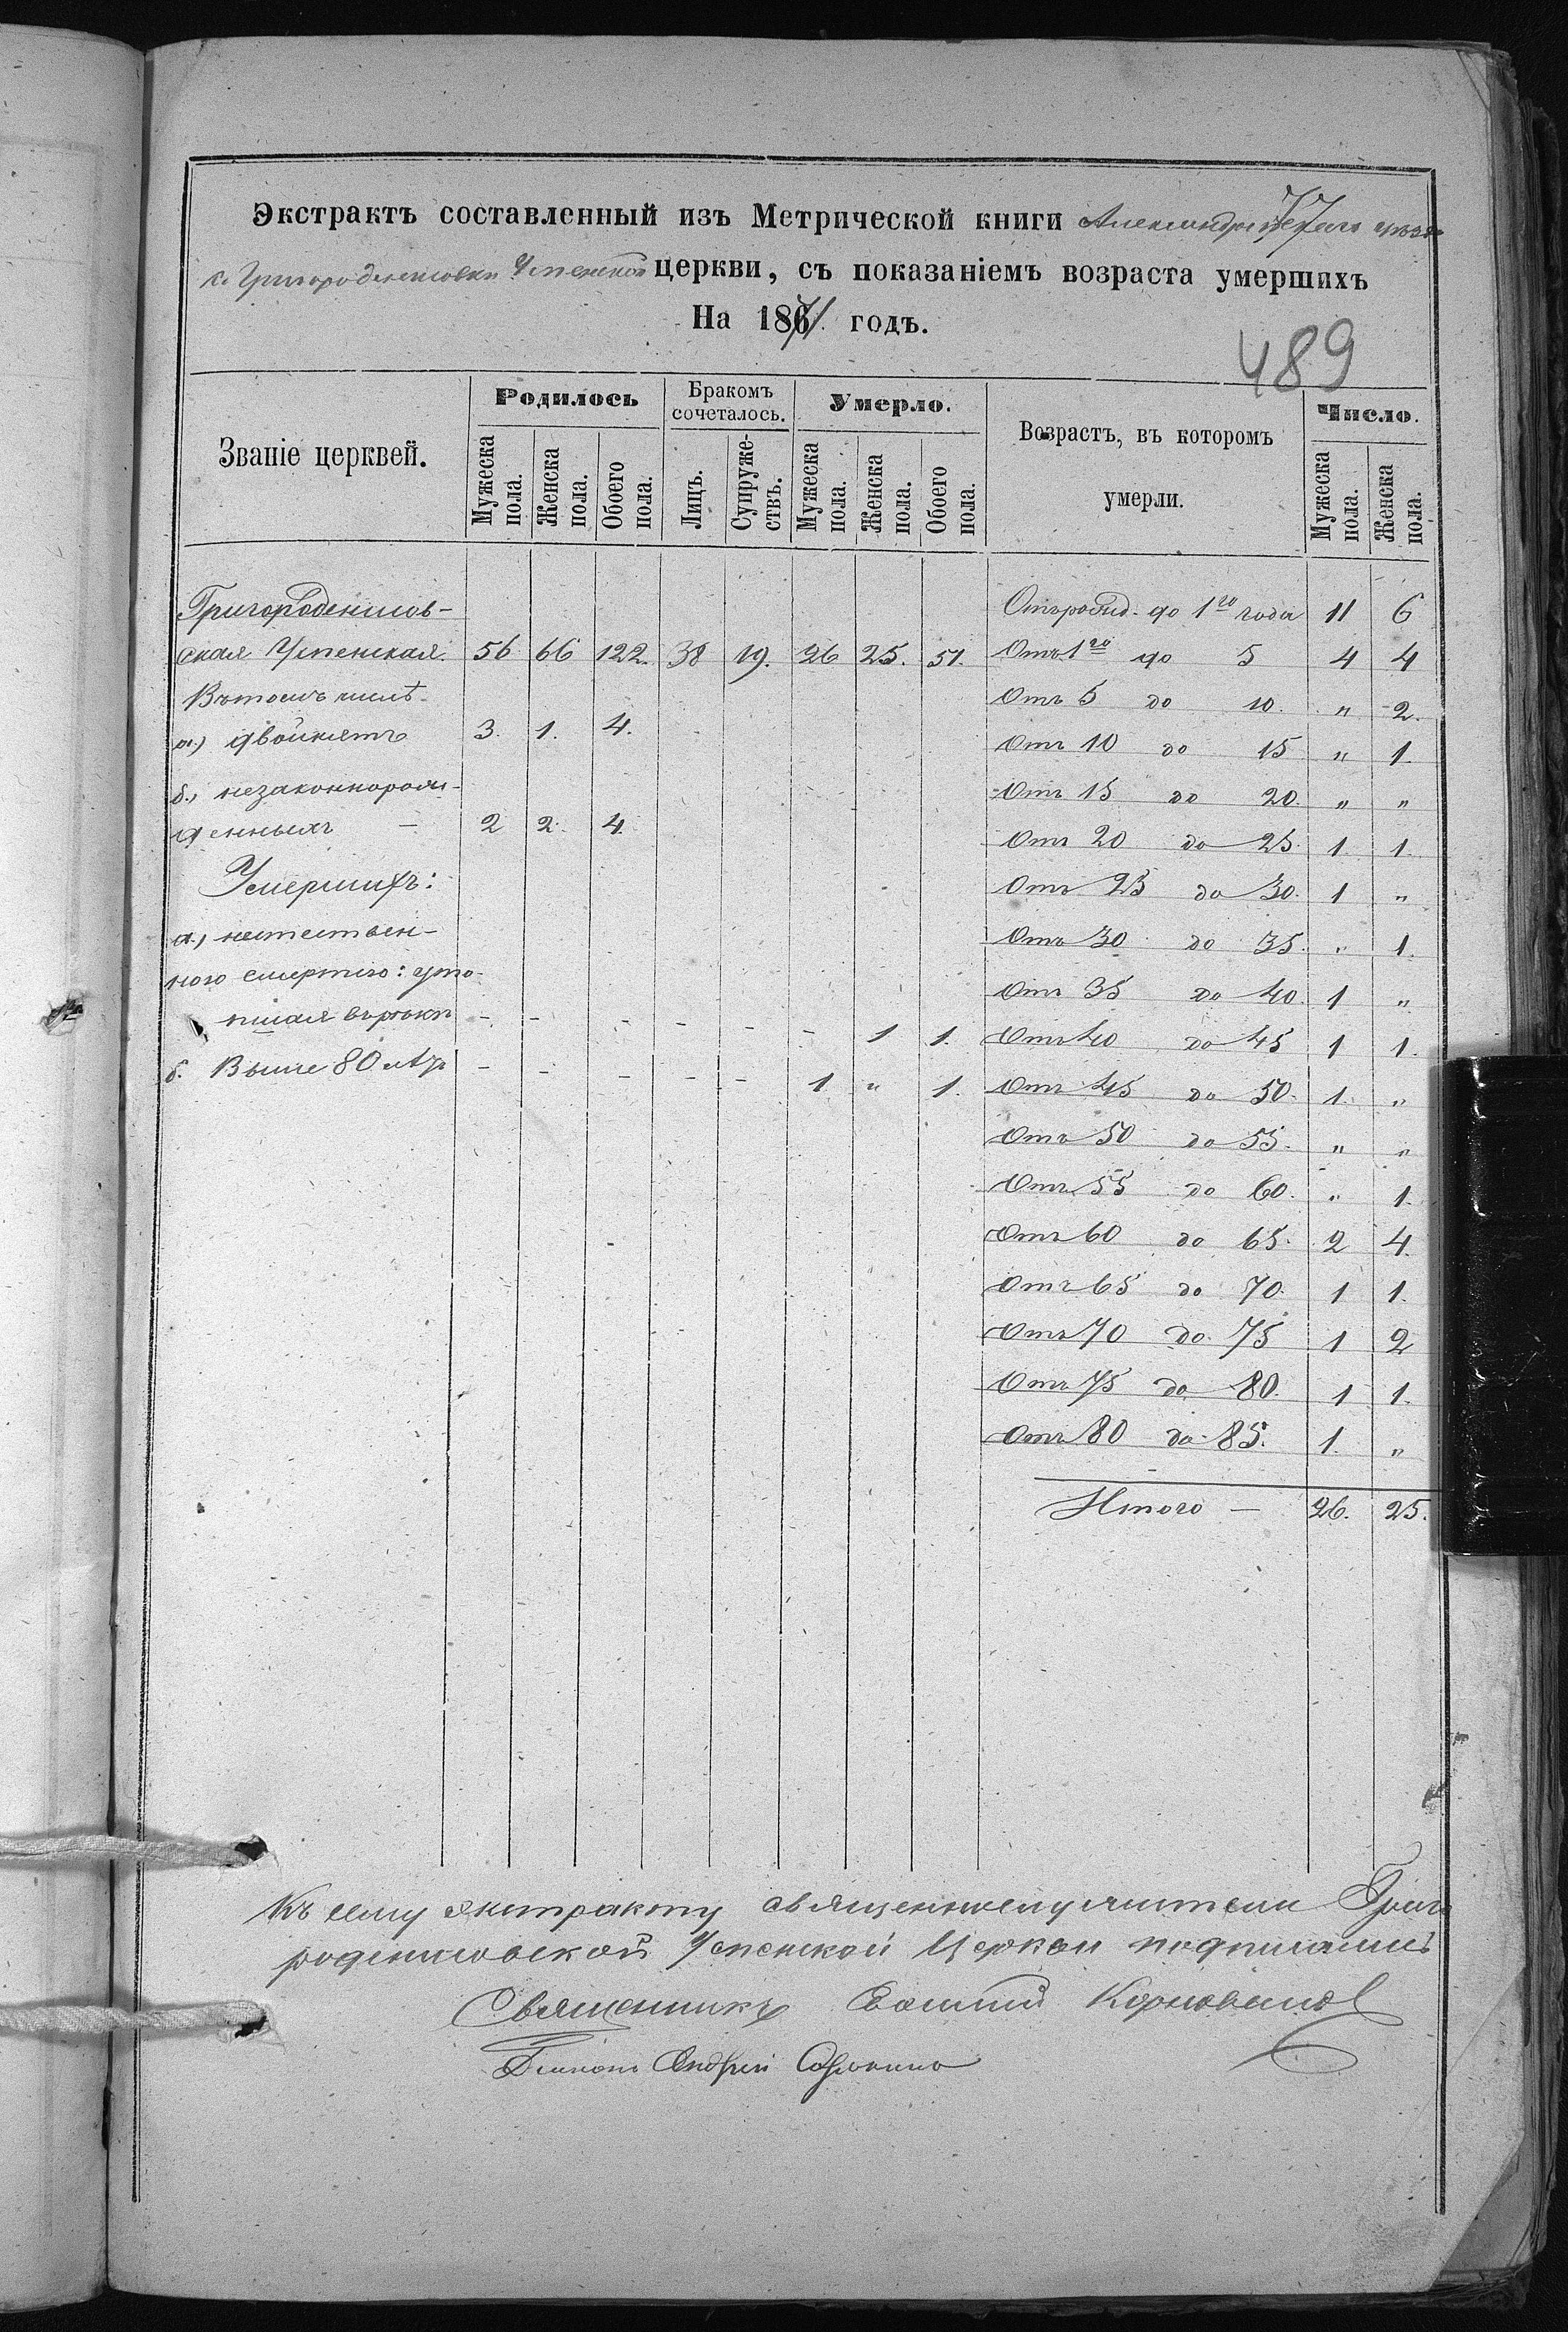 77
Экстрактъ составленный изъ Метрической книги Александрійскаго уѣзда
с. Григороденисовки Успенской церкви, съ показаніемъ возраста умершихъ
На 1871 годъ.
489
Званіе церквей. Родилось Бракомъ сочеталось. Умерло. Возрастъ, въ которомъ умерли. Число.
Мужеска пола. Женска пола. Обоего пола. Лицъ. Супружествъ. Мужеска пола. Женска пола. Обоего пола. Мужеска пола. Женска пола.
Григороденисов-
ская Успенская. 56 66 122. 38 19. 26 25. 51.
Въ томъ числѣ
а.) двойнятъ 3. 1. 4.
б., незаконнорож-
денныхъ — 2 2. 4.
Умершихъ:
а., неестествен-
ною смертію: уто-
пшая въ рѣкѣ - - - - - - 1 1.
б. Выше 80 лѣтъ - - - - - 1 " 1.
Отъ рожд. до 1го года 11 6
Отъ 1го до 5 4 4
Отъ 5 до 10. " 2.
Отъ 10 до 15 " 1.
Отъ 15 до 20. " "
Отъ 20 до 25. 1. 1.
Отъ 25 до 30. 1 "
Отъ 30 до 35. " 1.
Отъ 35 до 40. 1 "
Отъ 40 до 45 1 1.
Отъ 45 до 50. 1. "
Отъ 50 до 55. " "
Отъ 55 до 60. " 1.
Отъ 60 до 65. 2 4.
Отъ 65 до 70. 1 1.
Отъ 70 до 75 1 2
Отъ 75 до 80. 1 1.
Отъ 80 до 85. 1. "
Итого — 26. 25.
Къ сему экстракту священнослужители Григо
роденисовской Успенской Церкви подписались
Священникъ Василій
Діаконъ Андрей